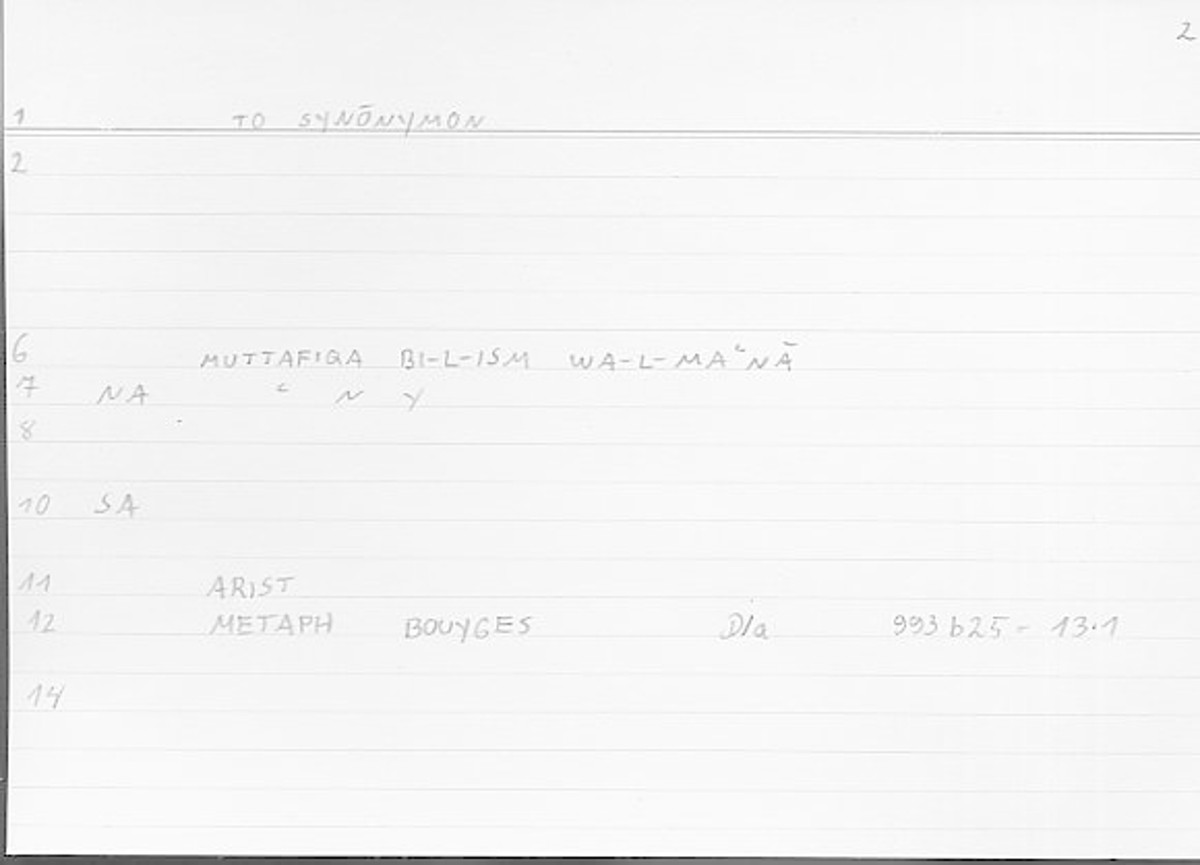 2
1 TO SYNŌNYMON
2
6 MUTTAFIQA BI-L-ISM WA-L-MAʿNĀ
7 NA ʿ N Y
8
10 SA
11 ARIST
12 METAPH BOUYGES D/a 993 b25 - 13.1
14